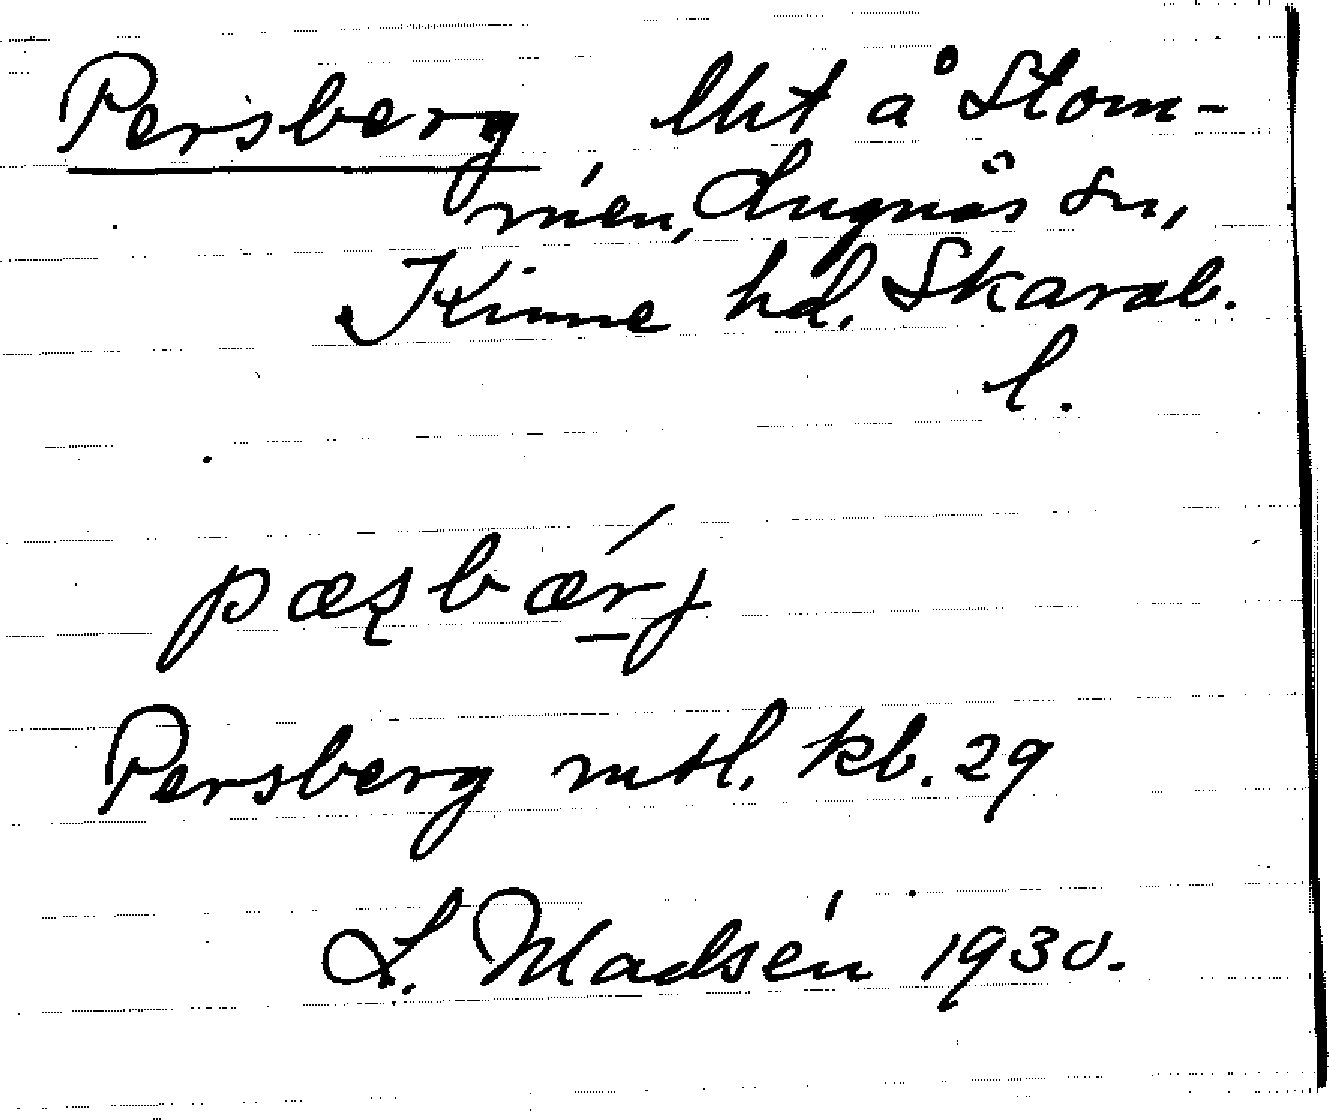 Persberg lht å Stom-
men, Lugnås sn,
Kinne hd, Skarab.
l.
pæʂbærj
Persberg mtl. kb. 29
L. Madsén 1930.